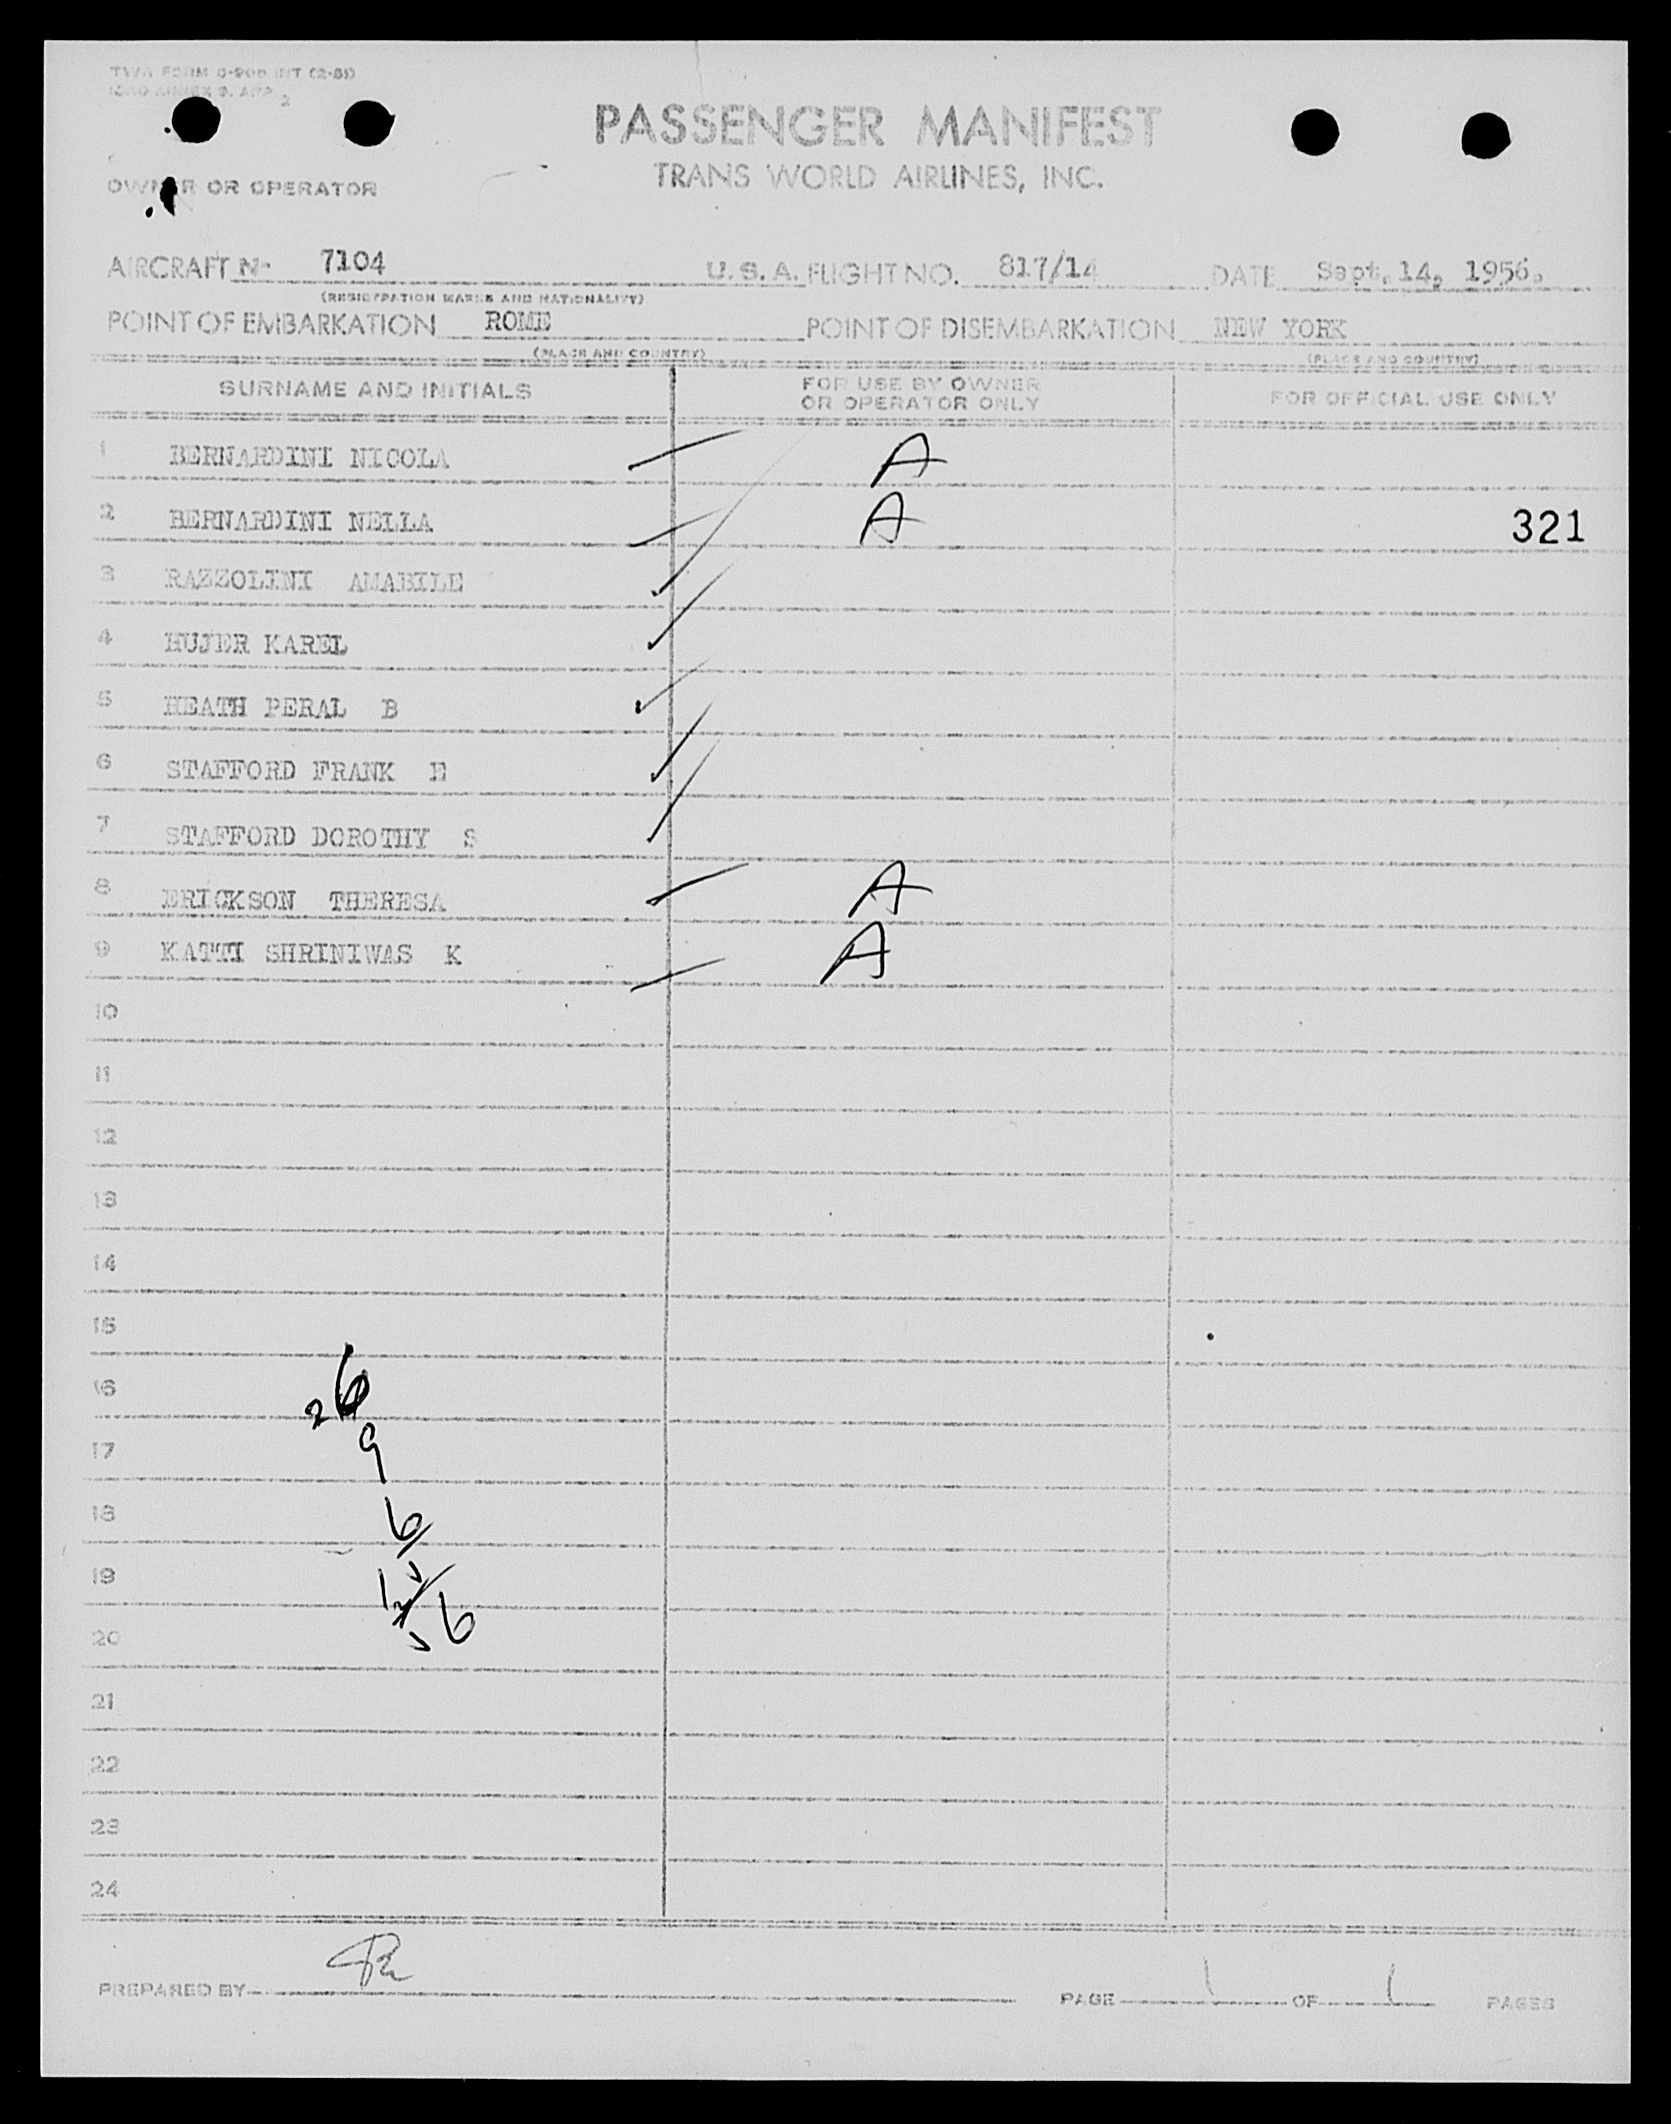 TWA FORM O-906 INT (2-51)
ICAO ANNEX 9, APP 2
PASSENGER MANIFEST
TRANS WORLD AIRLINES, INC.
OWNER OR OPERATOR
AIRCRAFT No 7104 U.S.A. FLIGHT NO. 817/14 DATE Sept. 14, 1956.
(REGISTRATION MARKS AND NATIONALITY)
POINT OF EMBARKATION ROME POINT OF DISEMBARKATION NEW YORK
(PLACE AND COUNTRY) (PLACE AND COUNTRY)
SURNAME AND INITIALS FOR USE BY OWNER OR OPERATOR ONLY FOR OFFICIAL USE ONLY
1 BERNARDINI NICOLA A
2 BERNARDINI NELLA A 321
3 RAZZOLINI AMABILE
4 HUJER KAREL
5 HEATH PERAL B
6 STAFFORD FRANK E
7 STAFFORD DOROTHY S
8 ERICKSON THERESA A
9 KATTI SHRINIWAS K A
10
11
12
13
14
15
16 26
17 9
18 6
19
20
21
22
23
24
PREPARED BY PAGE 1 OF 1 PAGES